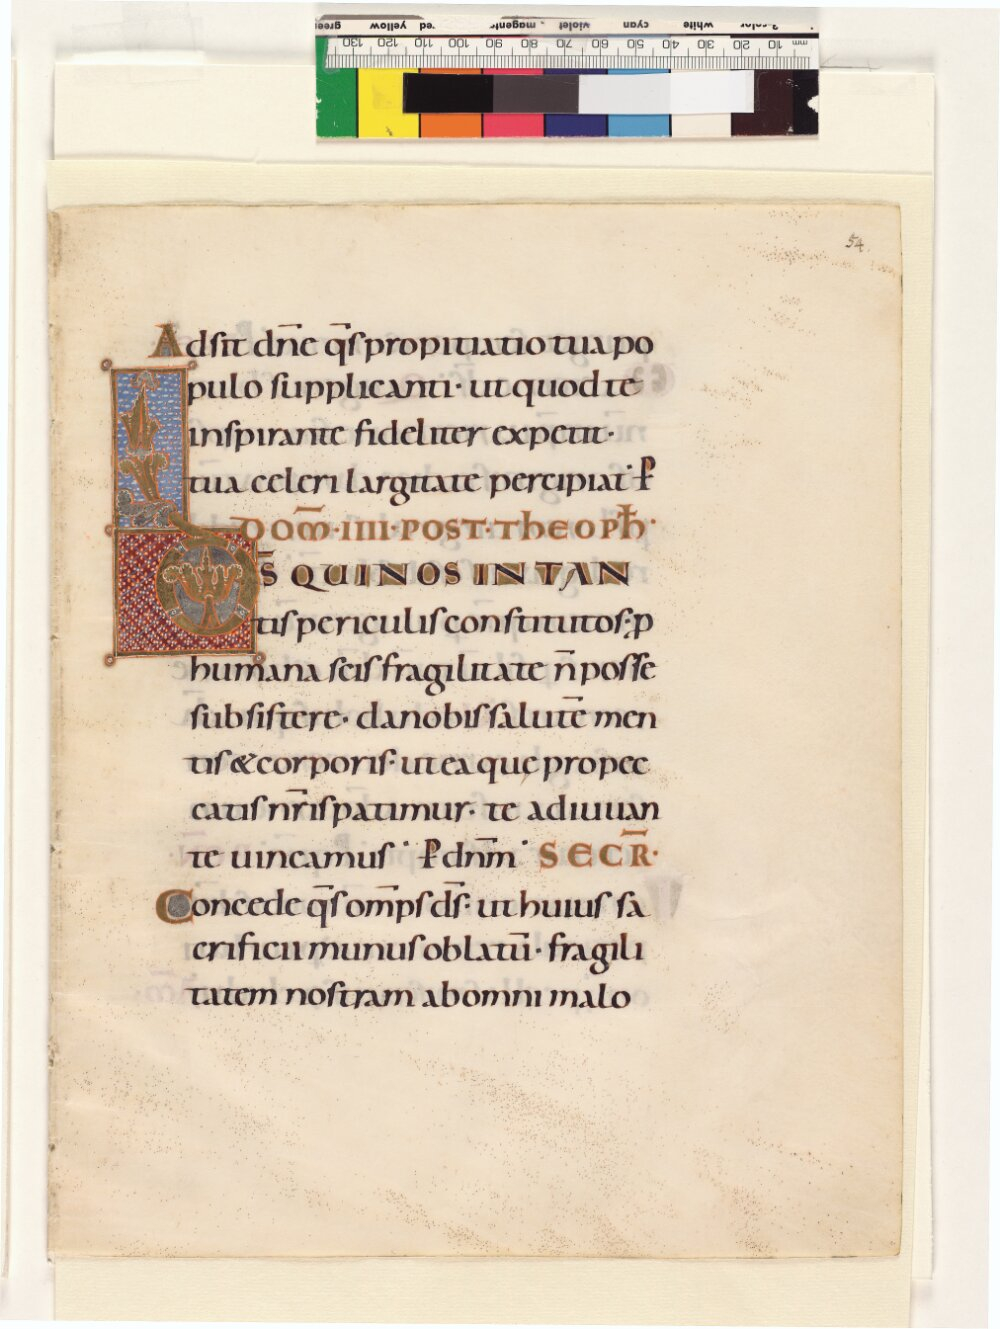 mm 10 20 30 40 50 60 70 80 90 100 110 120 130
white cyan violet magenta red yellow green
54
Adsit dn̄e q̄s propitiatio tua po
pulo supplicanti · ut quod te
inspirante fideliter expetit ·
tua celeri largitate percipiat · P̄
DOM̄ · IIII · POST · TheOPh̄ ·
D̄S QUI NOS IN TAN
tis periculis constitutos; p
humana scis fragilitate n̄ posse
subsistere · da nobis salutē men
tis & corporis · ut ea que pro pec
catis nr̄is patimur · te adiuuan
te uincamus · P̄ dn̄m · SECR̄ ·
Concede q̄s om̄ps d̄s · ut huius sa
crificii munus oblatū · fragili
tatem nostram ab omni malo